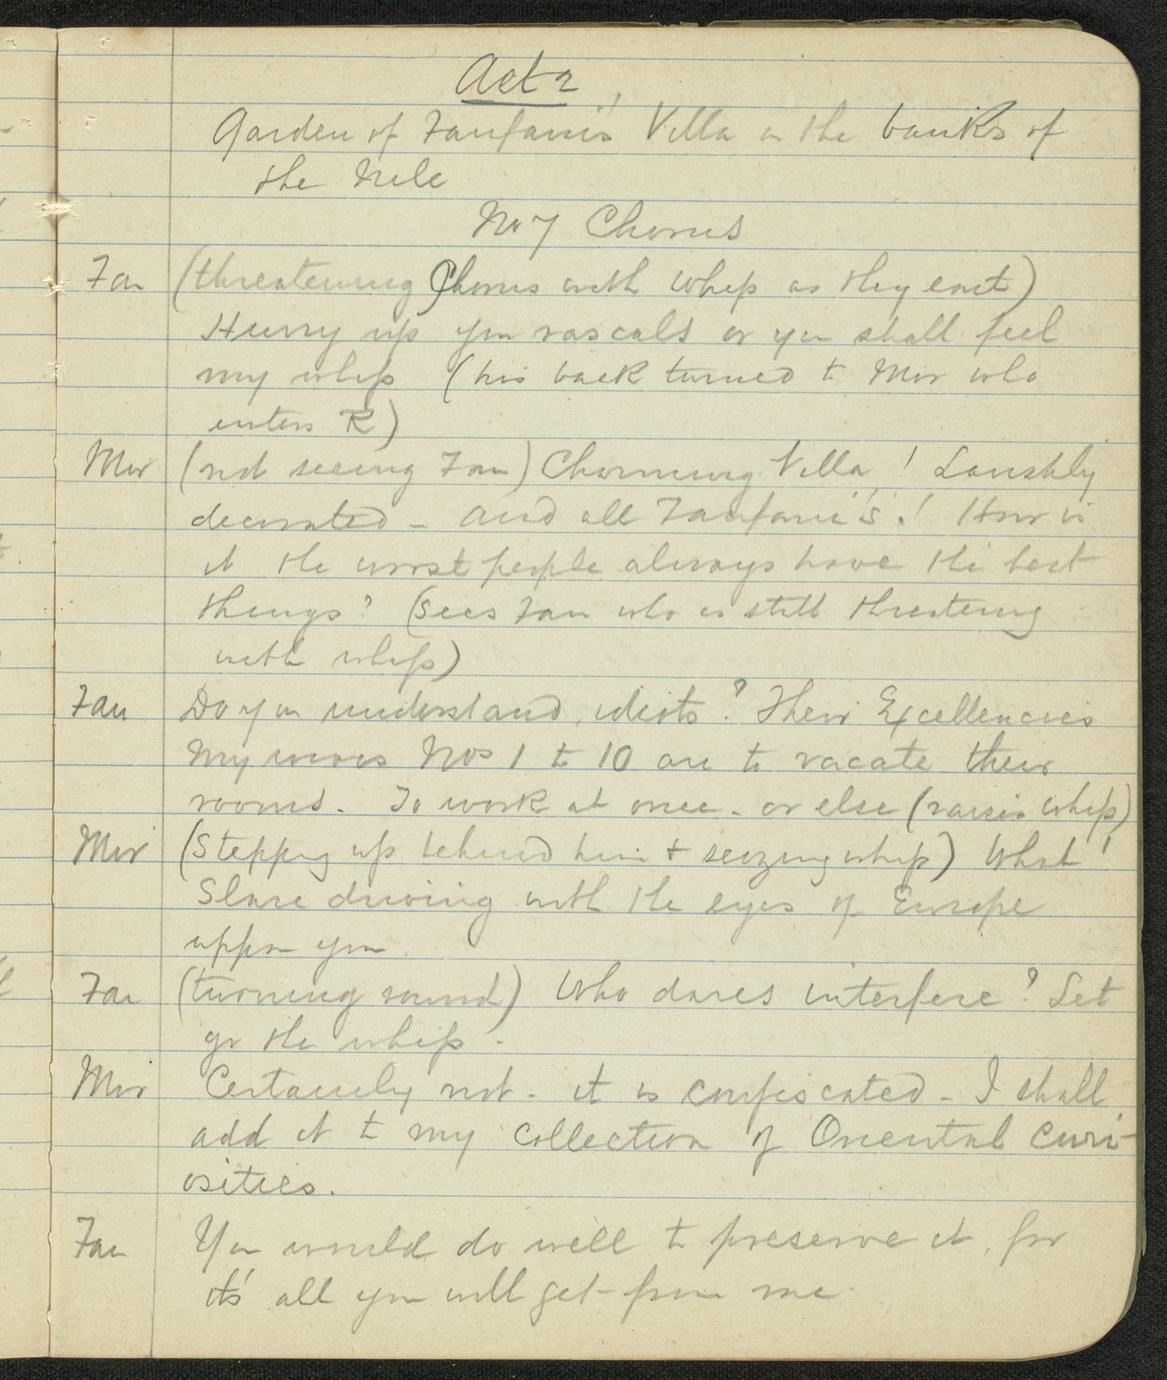 Act 2
Garden of Fanfani's Villa on the banks of
the Nile
No 7 Chorus
Fan (threatening Chorus with whip as they exit)
Hurry up you rascals or you shall feel
my whip (his back turned to Mir who
enters R)
Mir (not seeing Fan) Charming Villa! Lavishly
decorated - And all Fanfani's! How is
it the worst people always have the best
things? (Sees Fan who is still threatening
with whip)
Fan Do you understand, idiots? Their Excellencies
My wives Nos 1 to 10 are to vacate their
rooms. To work at once - or else (raises whip)
Mir (Stepping up behind him + seizing whip) What!
Slave driving with the eyes of Europe
uppon you
Fan (turning round) Who dares interfere? Let
go the whip -
Mir Certainly not - it is confiscated - I shall
add it to my collection of Oriental Curi-
osities.
Fan You would do well to preserve it, for
it's all you will get from me